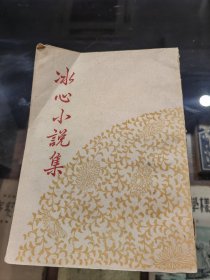 冰心小說集